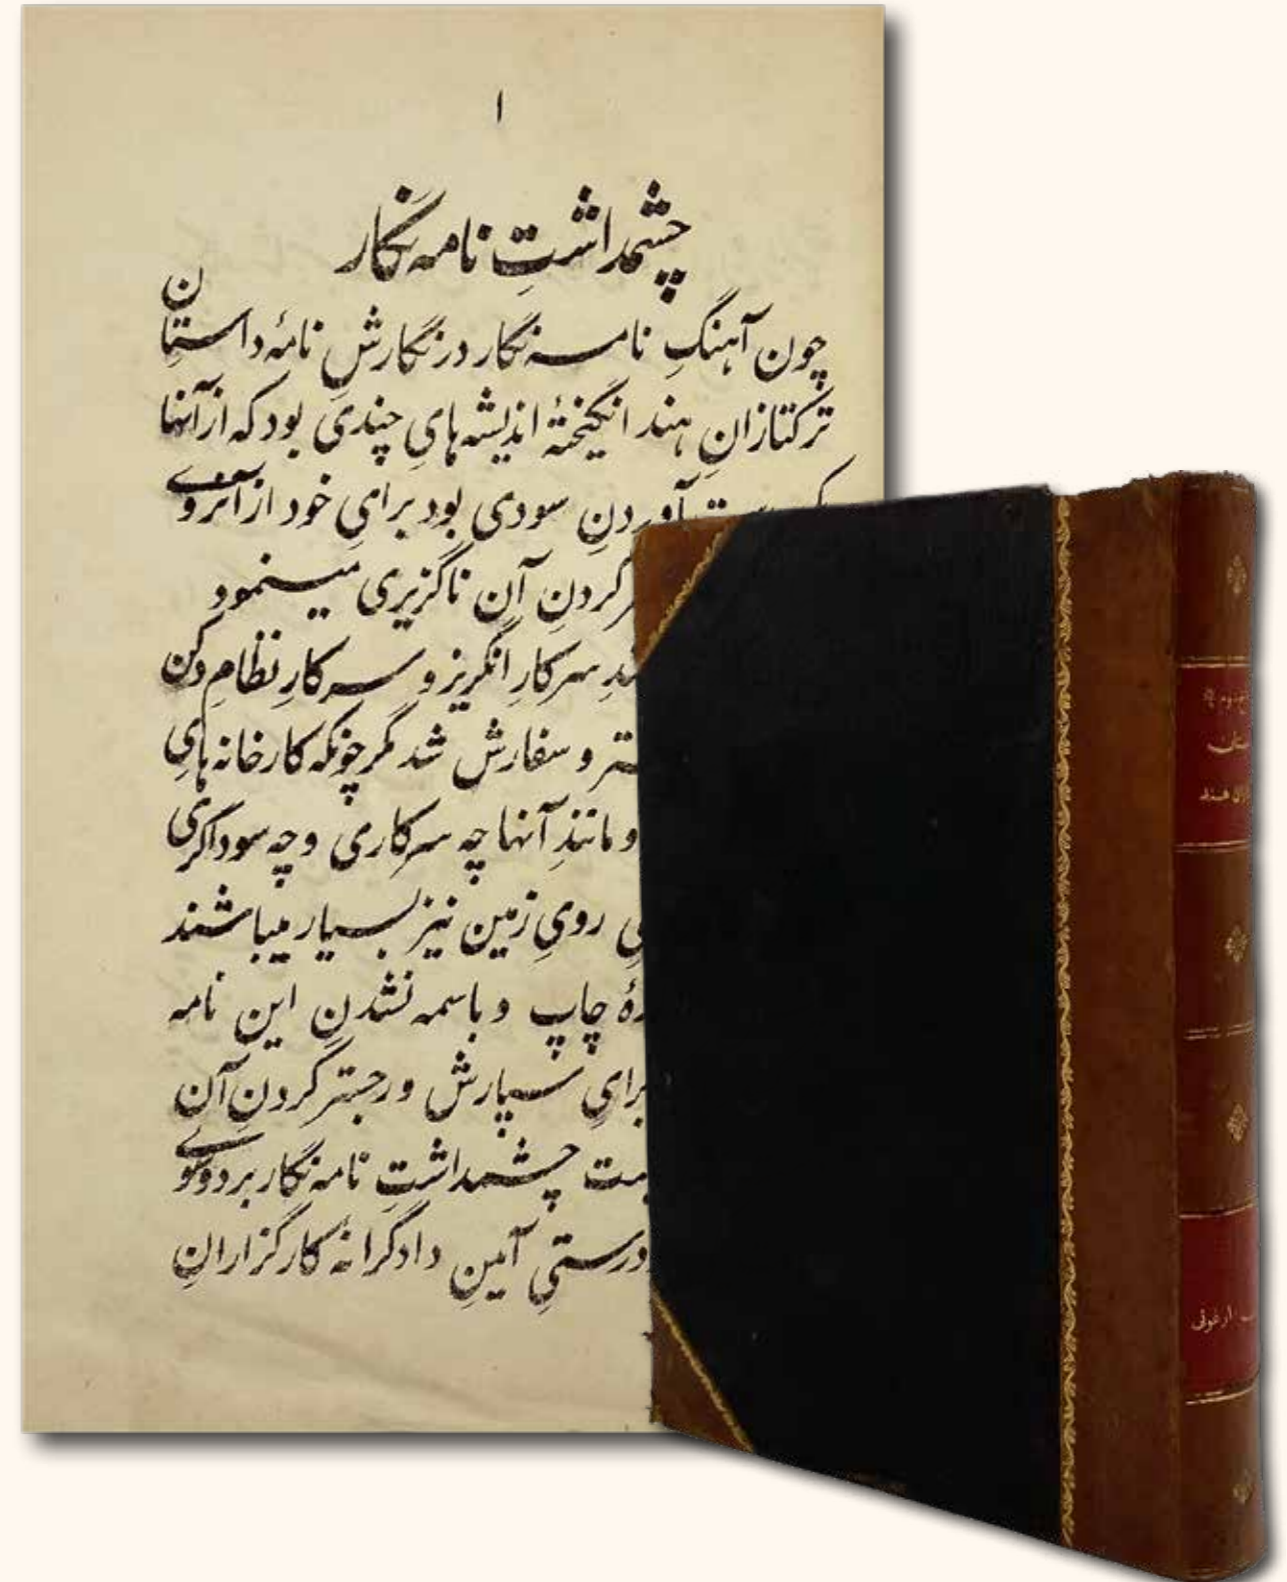 ۱
چشمداشتِ نامه نگار
چون آهنگِ نامه نگار در نگارشِ نامهٔ داستان
ترکتازانِ هند انگیختهٔ اندیشه‌هایِ چندی بود که از آنها
آوردنِ سودی بود برایِ خود از آنروی
کردنِ آن ناگزیری مینمود
سرکارِ انگریز و سرکارِ نظامِ دکن
و سفارش شد مگر چونکه کارخانه‌هایِ
و مانندِ آنها چه سرکاری و چه سوداگری
رویِ زمین نیز بسیار میباشند
چاپ و باسمه نشدنِ این نامه
برایِ سپارش و رجستر کردنِ آن
چشمداشتِ نامه نگار بر دو سوی
درستیِ آیینِ دادگرانهٔ کارگزارانِ
هند
ارغونی